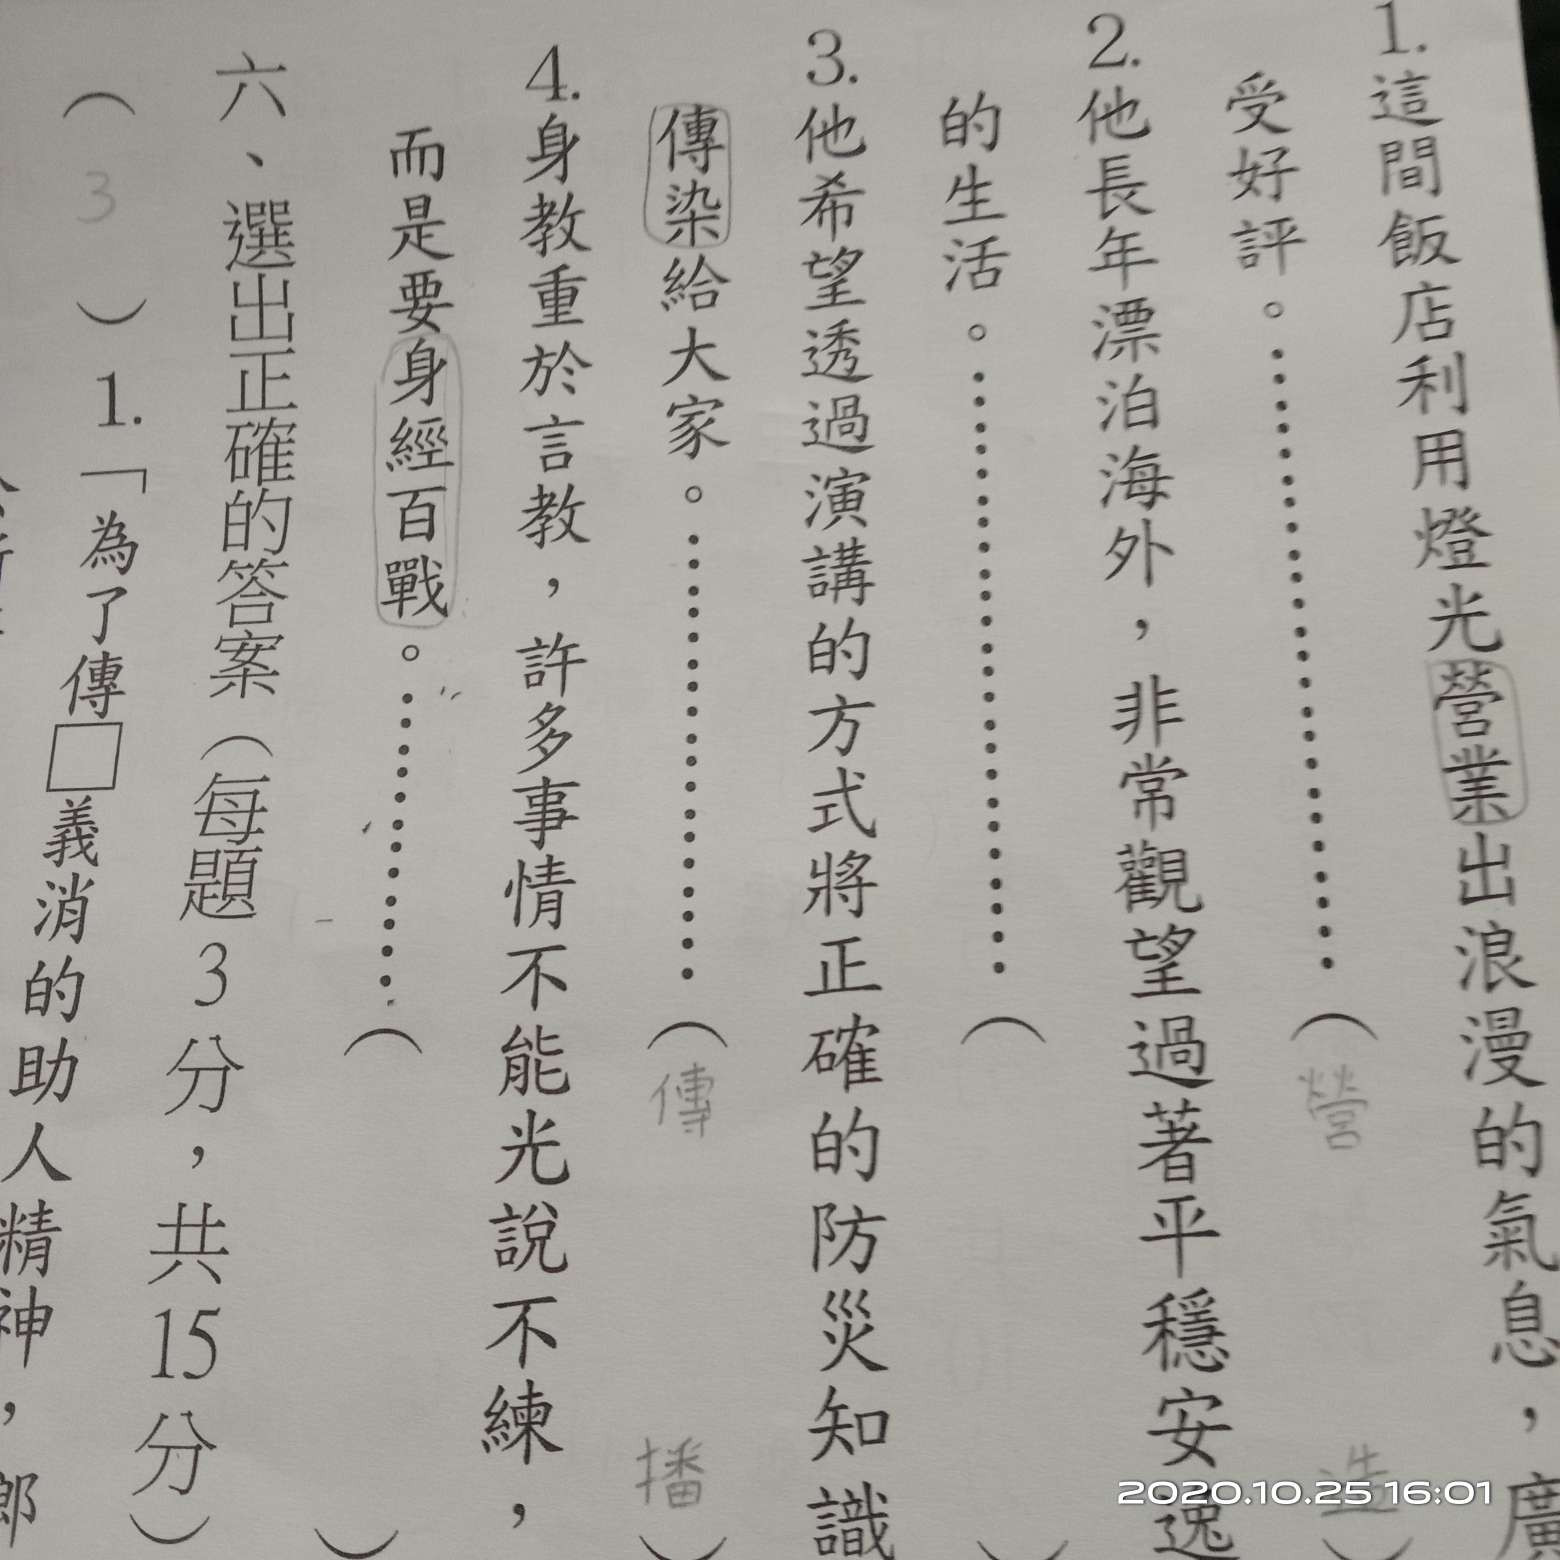 1.這間飯店利用燈光營業出浪漫的氣息，廣
受好評。⋯⋯⋯⋯⋯⋯⋯⋯（營造）
2.他長年漂泊海外，非常觀望過著平穩安逸
的生活。⋯⋯⋯⋯⋯⋯⋯⋯（）
3.他希望透過演講的方式將正確的防災知識
傳染給大家。⋯⋯⋯⋯⋯⋯（傳播）
4.身教重於言教，許多事情不能光說不練，
而是要身經百戰。⋯⋯⋯⋯（）
六、選出正確的答案（每題3分，共15分）
（3）1.「為了傳□義消的助人精神，郎
2020.10.25 16:01